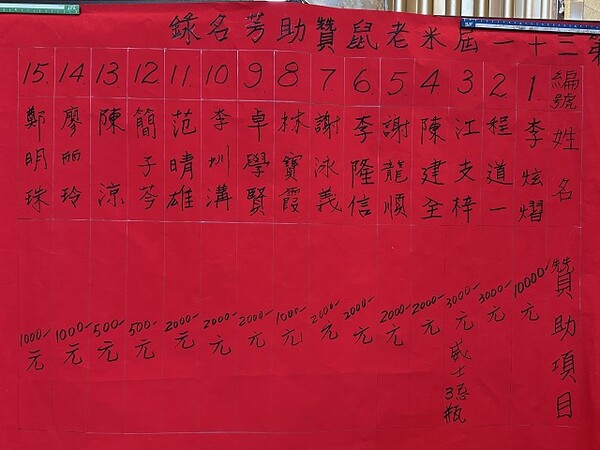 第三十一屆米老鼠贊助芳名錄
編號 姓名 贊助項目
1. 李炫熠 10000- 元
2. 程道一 3000- 元
3. 江支梓 3000- 元 威士3瓶
4. 陳建全 2000- 元
5. 謝龍順 2000- 元
6. 李隆信 2000- 元
7. 謝泳義 2000- 元
8. 林寶霞 1000- 元
9. 卓學賢 2000- 元
10. 李圳溝 2000- 元
11. 范晴雄 2000- 元
12. 簡子芩 500- 元
13. 陳涼 500- 元
14. 廖丽玲 1000- 元
15. 鄭明珠 1000- 元